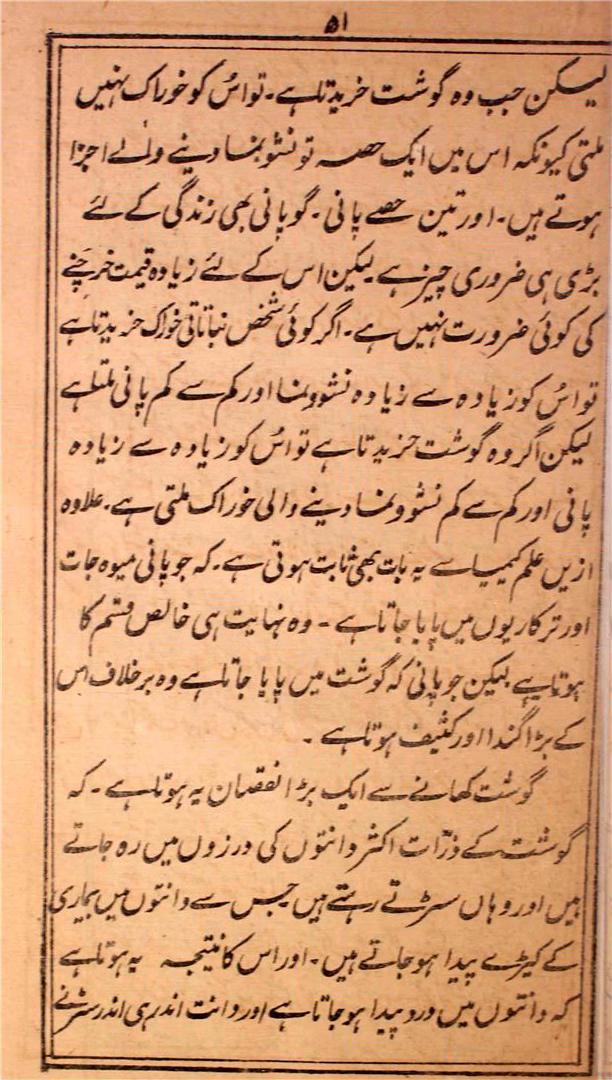 ۵۱
لیکن جب وہ گوشت خریدتا ہے۔ تو اسُ کو خوراک نہیں
ملتی کیونکہ اس میں ایک حصہ تو نشو بنما دینے والے اجزا
ہوتے ہیں۔ اور تین حصے پانی۔ گو پانی بھی زندگی کے لئے
بڑی ہی ضروری چیز ہے لیکن اس کے لئے زیادہ قیمت خرچنے
کی کوئی ضرورت نہیں ہے۔ اگر کوئی شخص نباتاتی خوراک خریدتا ہے
تو اسُ کو زیادہ سے زیادہ نشوونما اور کم سے کم پانی ملتا ہے
لیکن اگر وہ گوشت خریدتا ہے تو اسُ کو زیادہ سے زیادہ
پانی اور کم سے کم نشوونما دینے والی خوراک ملتی ہے۔ علاوہ
ازیں علم کیمیا سے یہ بات بھی ثابت ہوتی ہے۔ کہ جو پانی میوہ جات
اور ترکاریوں میں پایا جاتا ہے ۔ وہ نہایت ہی خالص قسم کا
ہوتا ہے لیکن جو پانی کہ گوشت میں پایا جاتا ہے وہ برخلاف اس
کے بڑا گندا اور کثیف ہوتا ہے ۔
گوشت کھانے سے ایک بڑا نقصان یہ ہوتا ہے ۔ کہ
گوشت کے ذرّات اکثر دانتوں کی درزوں میں رہ جاتے
ہیں اور وہاں سڑتے رہتے ہیں جس سے دانتوں میں بیماری
کے کیڑے پیدا ہو جاتے ہیں۔ اور اس کا نتیجہ یہ ہوتا ہے
کہ دانتوں میں درد پیدا ہو جاتا ہے اور دانت اندر ہی اندر سڑنے